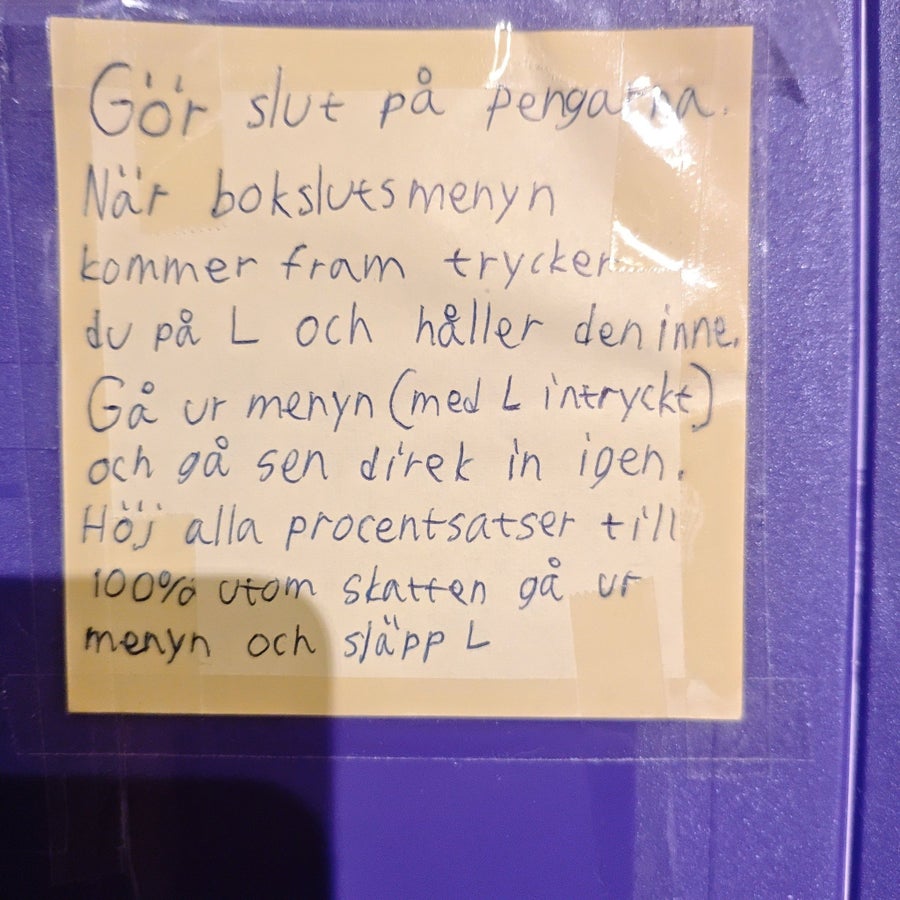 Gör slut på pengarna.
När bokslutsmenyn
kommer fram trycker
du på L och håller den inne.
Gå ur menyn (med L intryckt)
och gå sen direk in igen.
Höj alla procentsatser till
100% utom skatten gå ur
menyn och släpp L